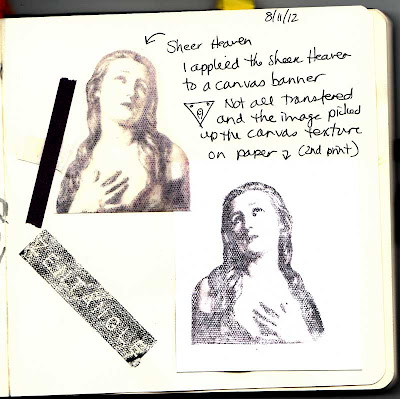 8/11/12
Sheer Heaven
I applied the Sheer Heaven
to a canvas banner
Not all transfered
and the image picked
up the canvas texture
on paper (2nd print)